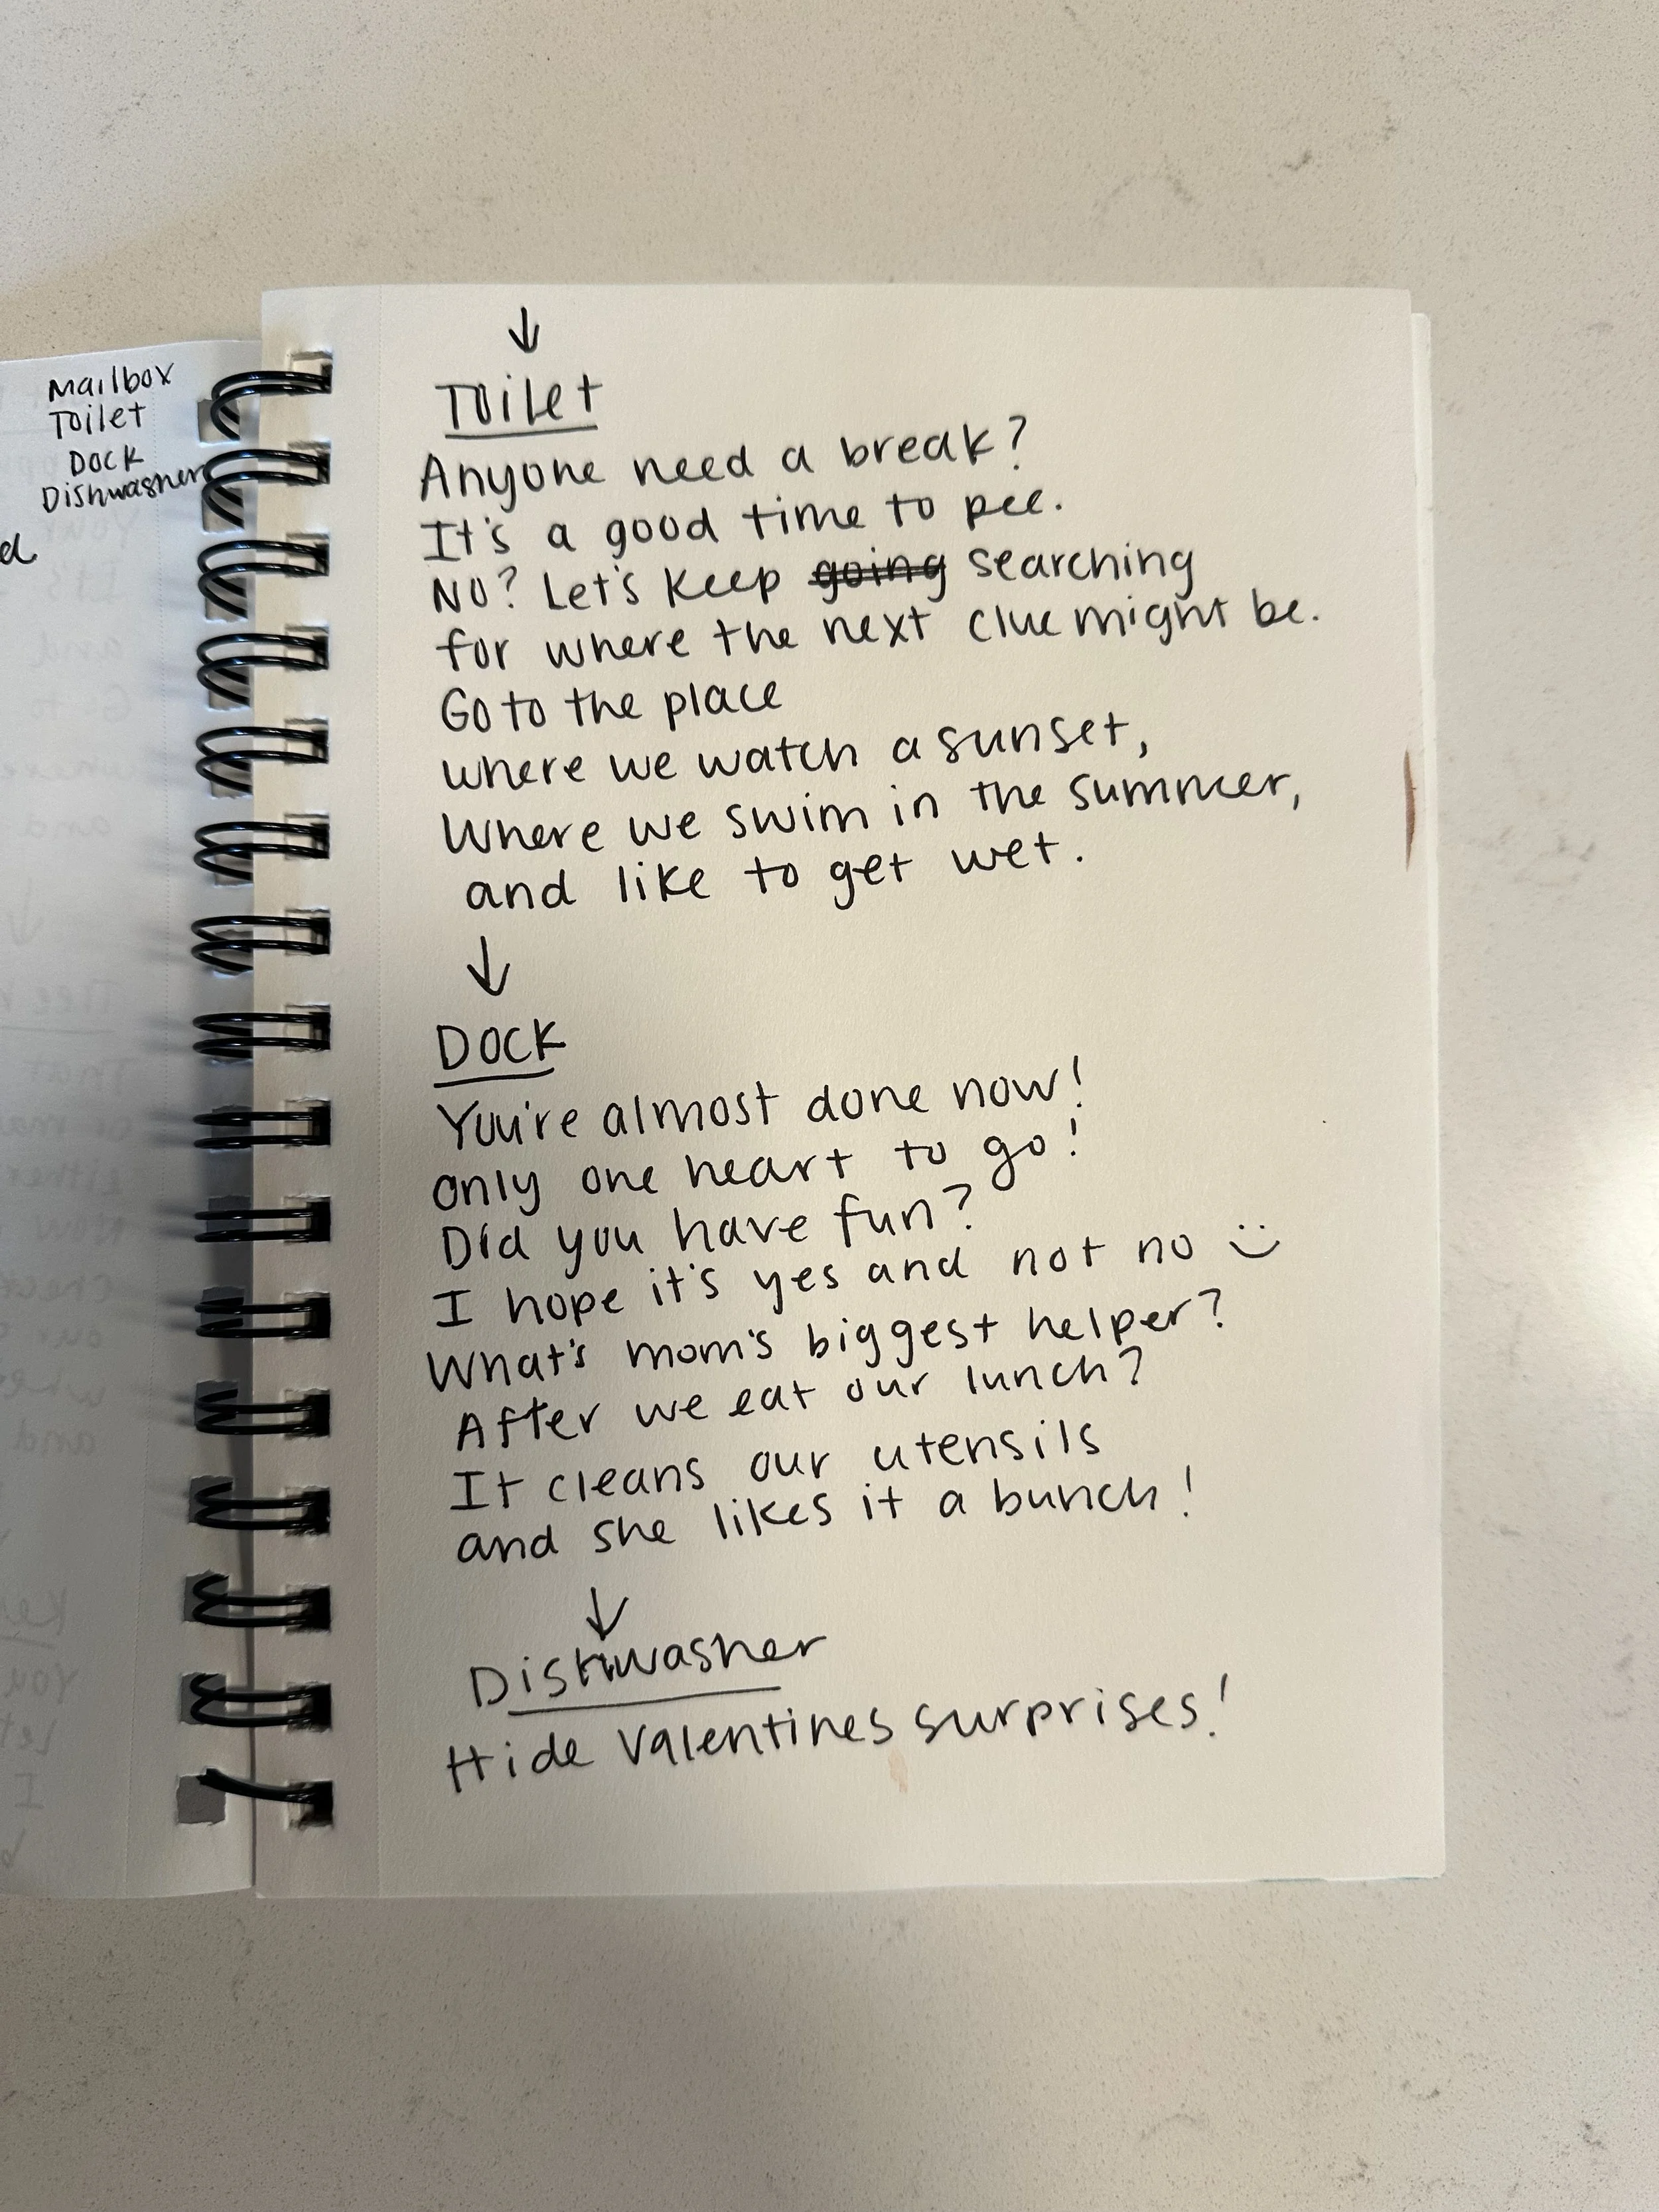 Mailbox
Toilet
Dock
Dishwasher
d
↓
Toilet
Anyone need a break?
It's a good time to pee.
No? Let's keep going searching
for where the next clue might be.
Go to the place
where we watch a sunset,
Where we swim in the summer,
and like to get wet.
↓
Dock
You're almost done now!
only one heart to go!
Did you have fun?
I hope it's yes and not no :)
What's mom's biggest helper?
After we eat our lunch?
It cleans our utensils
and she likes it a bunch!
↓
Dishwasher
Hide Valentines surprises!